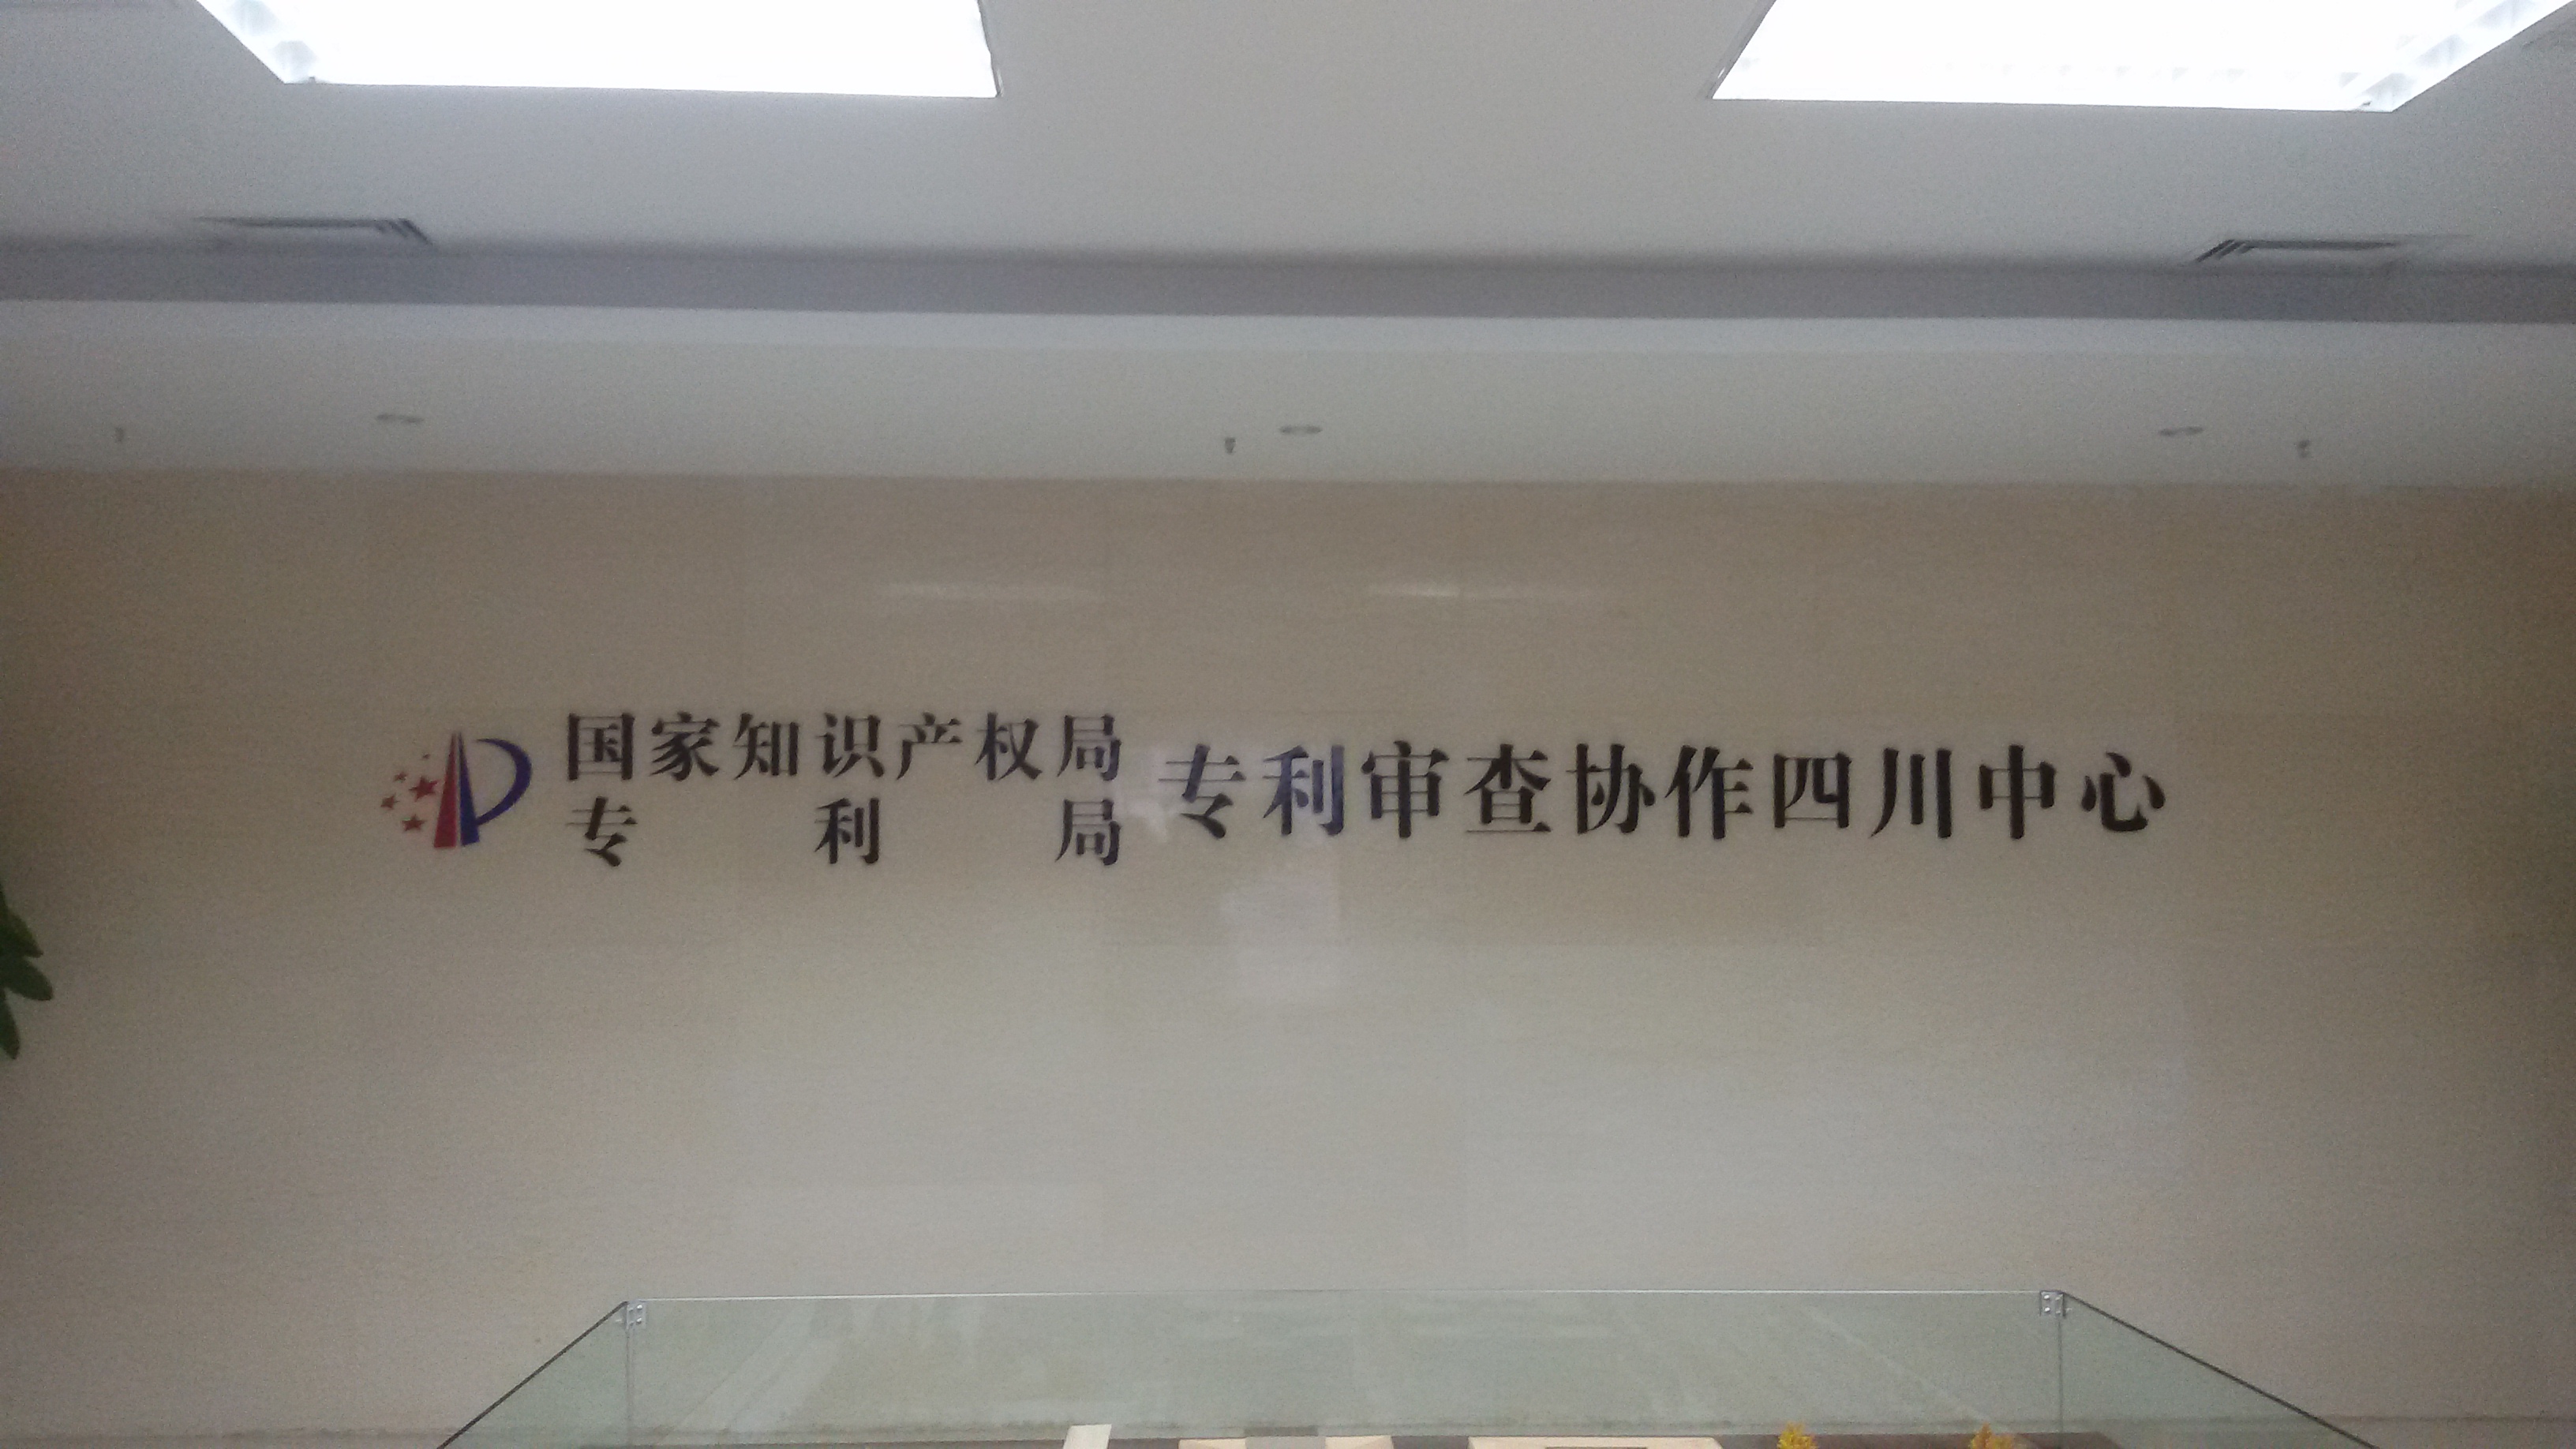 国家知识产权局
专利局
专利审查协作四川中心